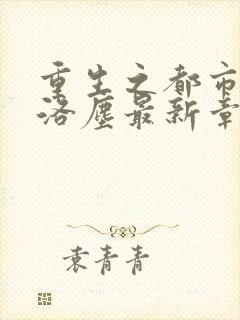 重生之都市
洛尘最新章
袁青青